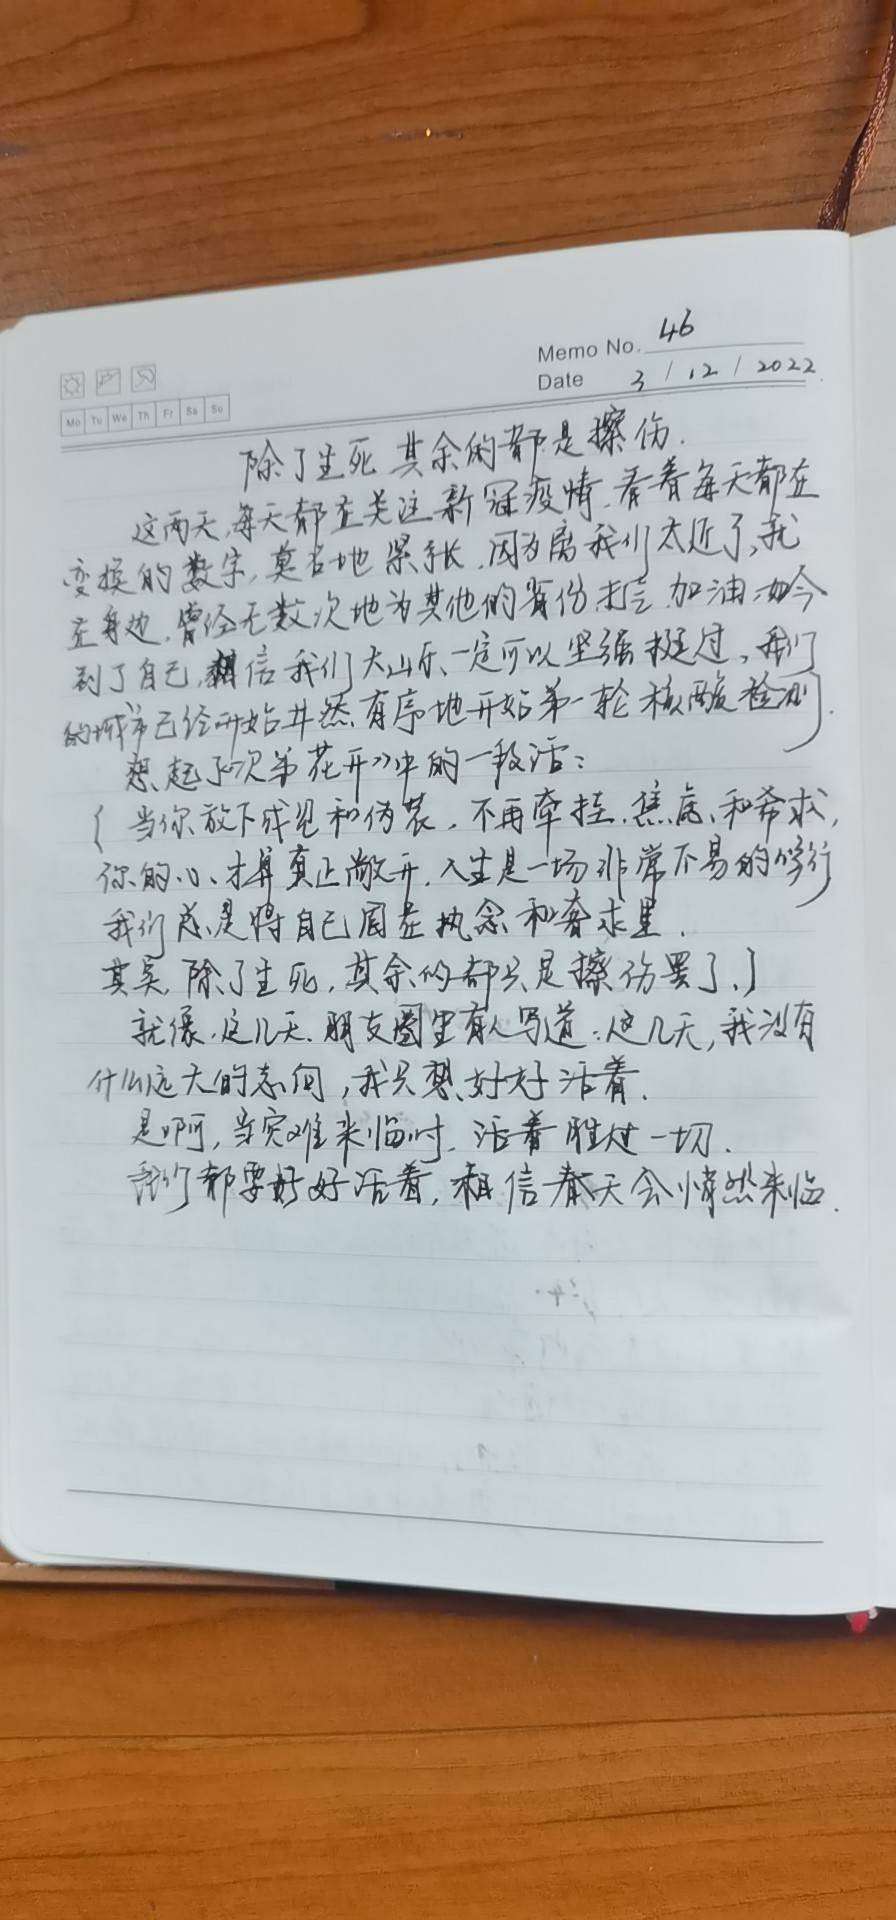 Memo No. 46
Date 3 / 12 / 2022
Mo Tu We Th Fr Sa Su
除了生死 其余的都是擦伤.
这两天,每天都在关注新冠疫情.看着每天都在
变换的数字,莫名地紧张.因为离我们太近了,就
在身边.曾经无数次地为其他的省份打气.加油.如今
到了自己,相信我们大山东、一定可以坚强挺过,我们
的城市已经开始井然有序地开始第一轮核酸检测.
想起《次第花开》中的一段话:
{当你放下成见和伪装.不再牵挂.焦虑、和希求,
你的心、才算真正敞开.人生是一场非常不易的修行
我们总是将自己困在执念和奢求里.
其实,除了生死,其余的都只是擦伤罢了.}
就像.这几天.朋友圈里有人写道:这几天,我没有
什么远大的志向,我只想、好好活着.
是啊,当灾难来临时.活着胜过一切.
我们都要好好活着,相信春天会悄然来临.